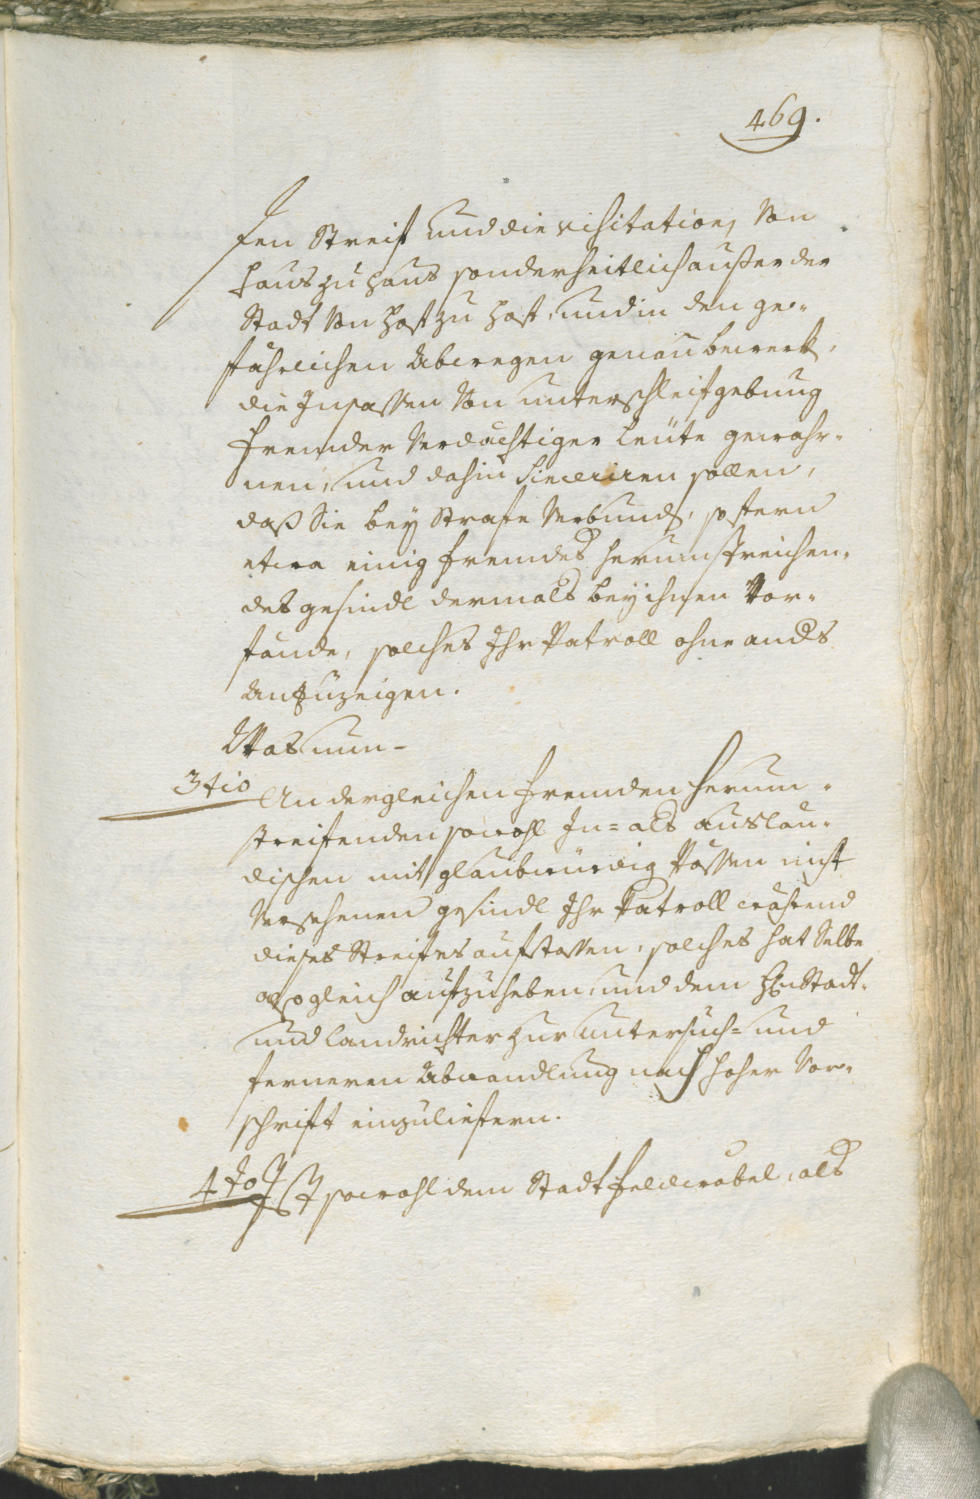 469.
sen Streif und die visitation, Von
Haus zu Haus sonderheitlich außer der
Stadt Von Hoff zu Hoff, und in den ge-
fährlichen Abwegen genau bewerk,
die Insassen Von unterschleifgebung
fremder Verdächtiger Leüte gewahr-
nen, und dahin sollen,
daß Sie bey Strafe Verbunds, sofern
etwa einig fremdes herumstreichen-
des gesindl dermals bey ihnen Vor-
stande, solches Ihr Patroll ohne ands
anzuzeigen.
Was nun-
3tio An dergleichen fremden herum-
streifenden sowohl In- als auslän-
dischen mit glaubwürdig Pässen nicht
Versehenen gesindl Ihr Patroll während
dieses Streifes aufstossen, solches hat Selbe
also gleich aufzuheben, und dem Hn Stadt-
und Landrichter zur untersuch- und
ferneren Abwandlung nach hoher Vor-
schrift einzuliefern.
4to Ist sowohl dem Stadt feldwabel, als